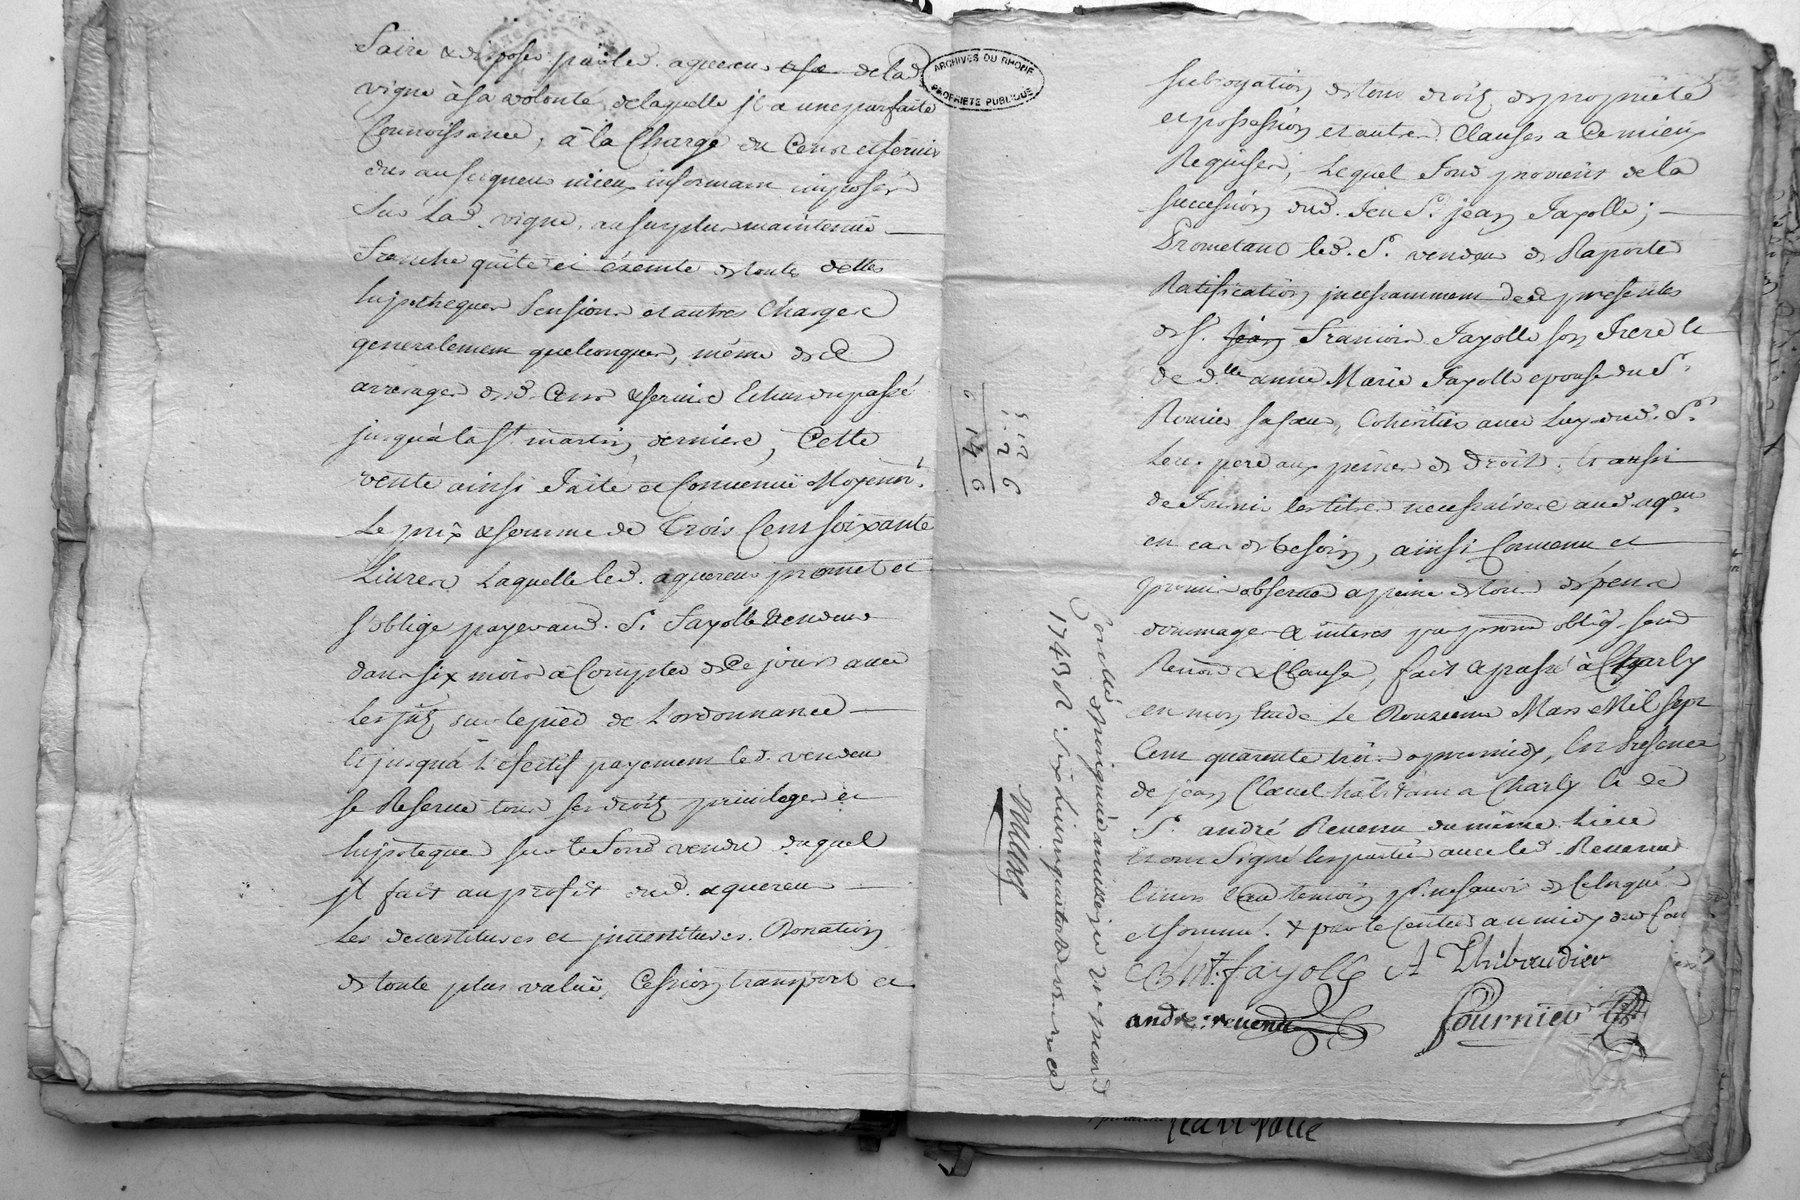 faire & disposer par led. aquereur de lad.
vigne à sa volonté, de laquelle jl a une parfaite
Connoissance, à la Charge du Cens et servis
dus au seigneur mieux informant imposés
sur lad. vigne, au surplus maintenüe
franche quitte et exempte de toute dettes
hipotheques Pensions et autres Charges
generalement quelconques, même de
arrerages desd. Cens & servis Echus du passé
jusqu'à la St martin derniere, Cette
vente ainsi faite et Convenüe Moyenñt
Le prix & somme de Trois Cent soixante
Livres Laquelle led. aquereur promet et
s'oblige payer aud. Sr. fayolle vendeur
dans six mois a Compter de Ce jour avec
sur le pied de L'ordonnance
et jusqu'à L'efectif payement led. vendeur
se Reserve tous ses droits privileges et
hipoteque sur le fond vendu duquel
jl fait au profit dud. aquereur
Les devestitures et jnvestitures. Donation
de toute plus value, Cession transport et
ARCHIVES DU RHONE
PROPRIÉTÉ PUBLIQUE
subrogation de tous droits de proprieté
et possession et autres Clauses a Ce mieux
Requises, Lequel fond provient de la
succession dud. feu Sr. jean fayolle;
Prometant led. Sr. vendeur de Raporter
Ratification jncessamment des presentes
de Sr. jean francois fayolle son frere &
de dlle anne Marie fayolle epouse du Sr.
sa sœur, Coheritiers avec Luy dud. Sr.
Leur pere aux peines de droit, Et aussi
de furnir les titres necessaires aud. aqeur
en cas de besoin, ainsi Convenu et
promis observer a peine de tous depens
dommages & interes par obliĝ.
Renoñ & Clause, fait & passé à Charly
en mon Etude Le Mars Mil sept
Cent quarente trois apres midy, En presence
de jean Clavel habitant a Charly Et de
Sr. andré Revenu du même Lieu
signé les parties avec led. Revenu
temoin pr. ne savoir de Ce Enquis
et sommé.
fayolle A Thibaudier
andre: revenu
fournier
Controllé
1743 Rt. six livres quatorze sols